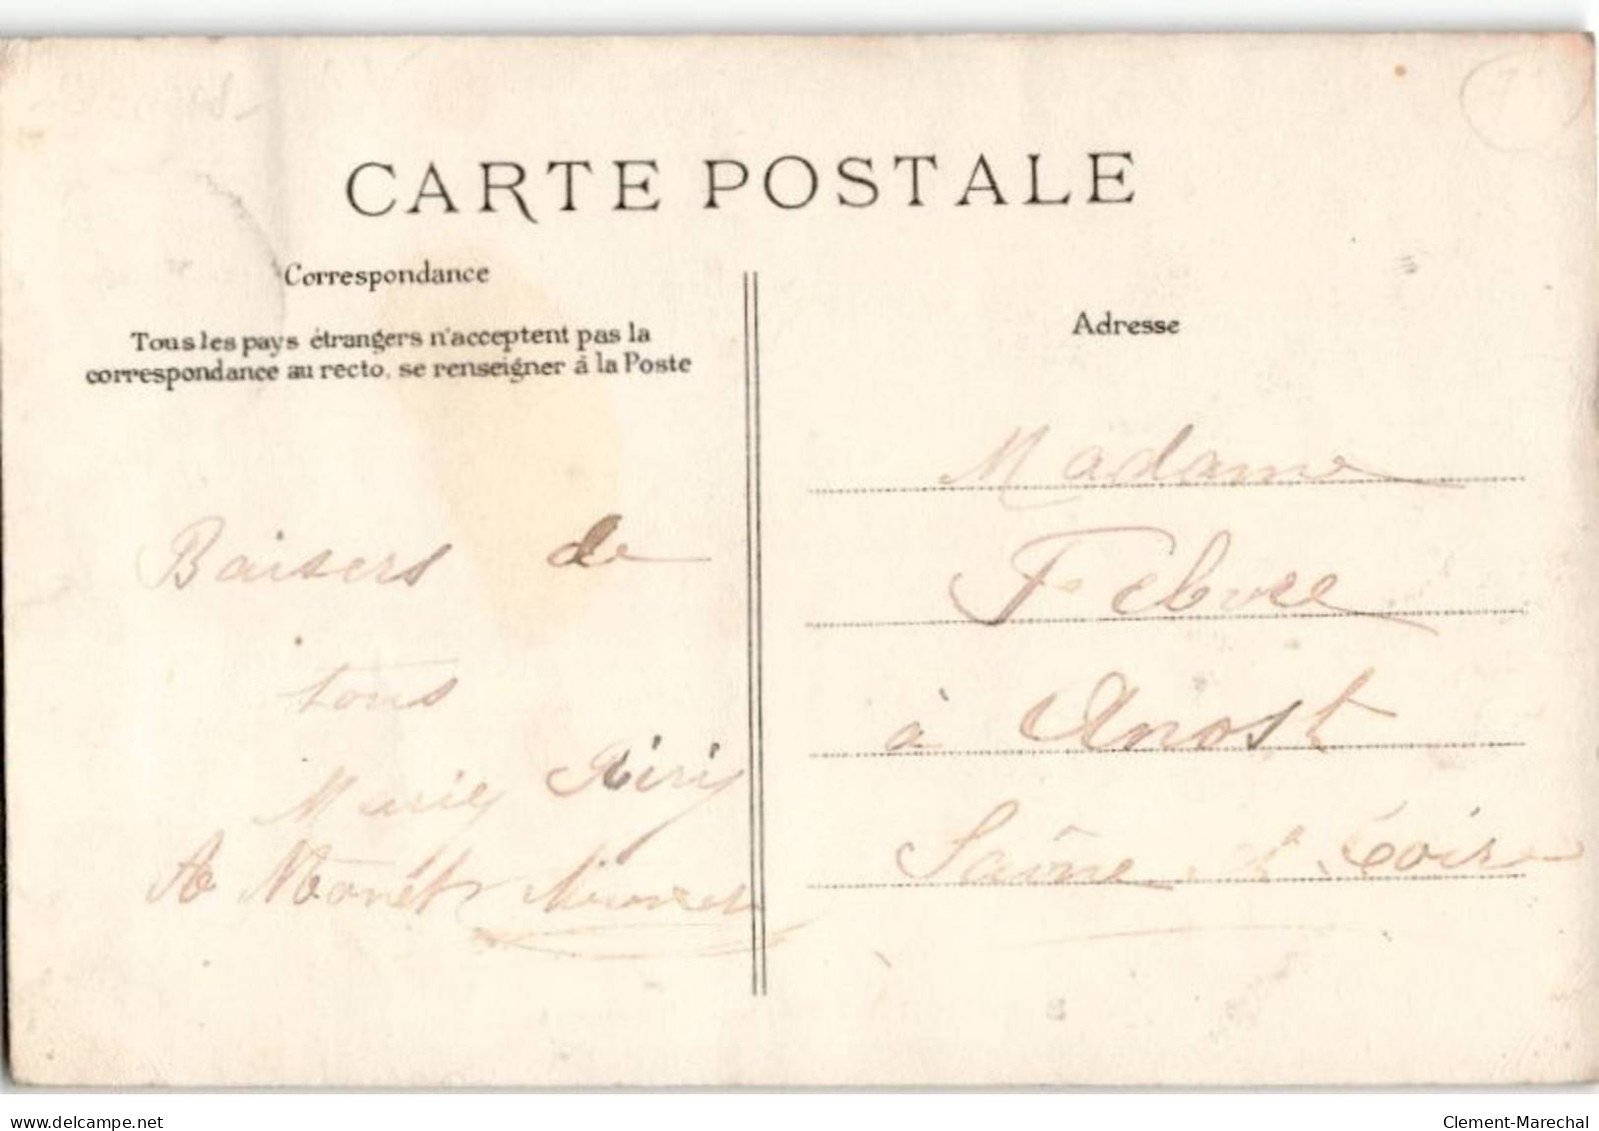 CARTE POSTALE
Correspondance
Tous les pays étrangers n'acceptent pas la
correspondance au recto, se renseigner à la Poste
Baisers de
tous
Marie
Adresse
Madame
Febvre
à Anost
Saône et Loire
delcampe.net
Clement-Marechal